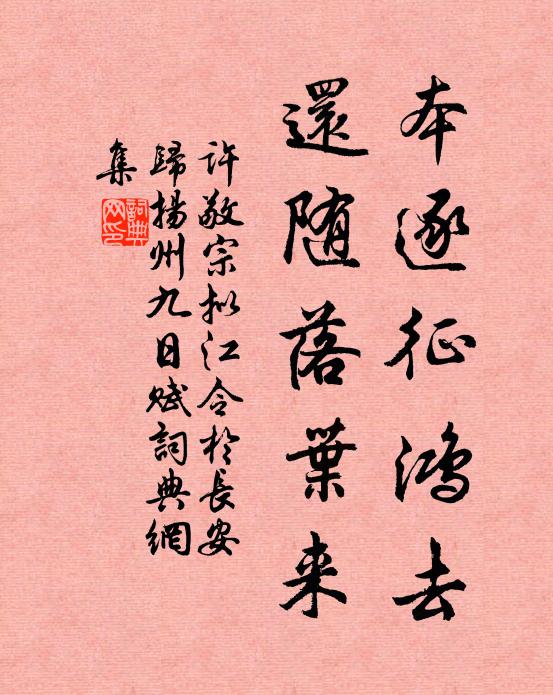 本逐征鴻去
還随落葉来
許敬宗拟江令於長安
歸揚州九日賦詞典網
集
詞典
网印